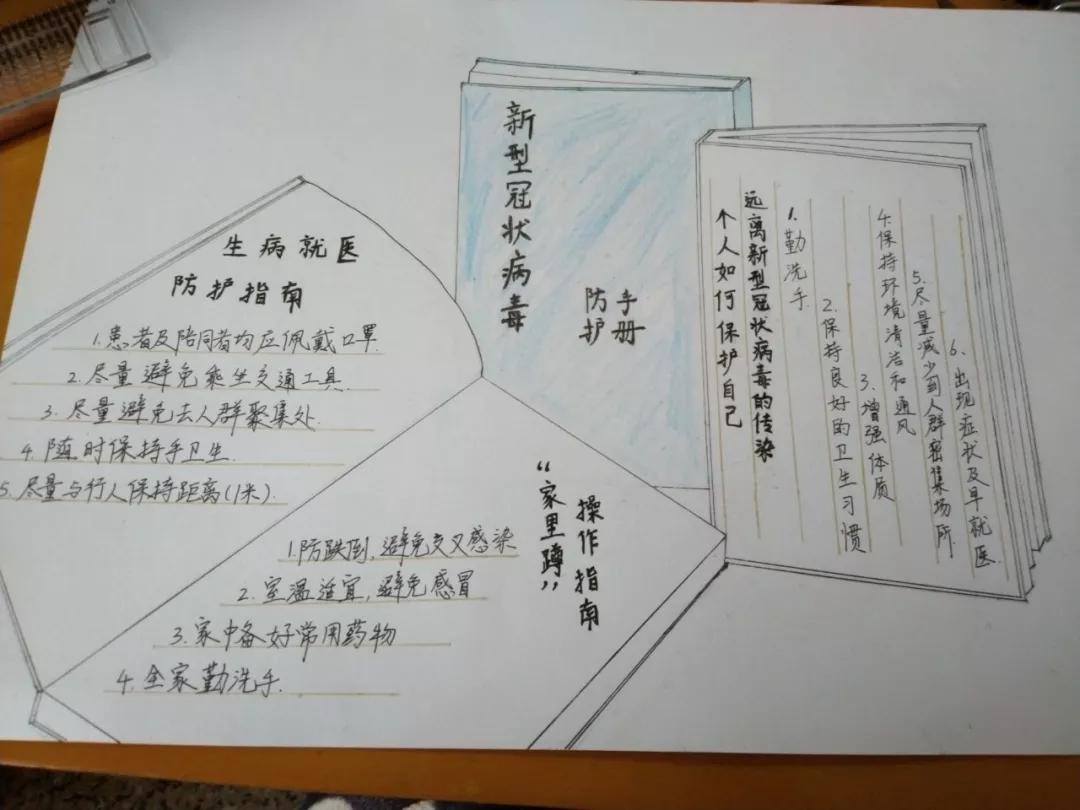 新型冠状病毒
防护
手册
生病就医
防护指南
1.患者及陪同者均应佩戴口罩
2.尽量避免乘坐交通工具.
3.尽量避免去人群聚集处.
4.随时保持手卫生.
5.尽量与行人保持距离(1米).
“家里蹲”
操作指南
1.防跌倒,避免交叉感染
2.室温适宜,避免感冒
3.家中备好常用药物
4.全家勤洗手.
个人如何保护自己
远离新型冠状病毒的传染
1.勤洗手
2.保持良好的卫生习惯
3.增强体质
4.保持环境清洁和通风
5.尽量减少到人群密集场所
6.出现症状及早就医.